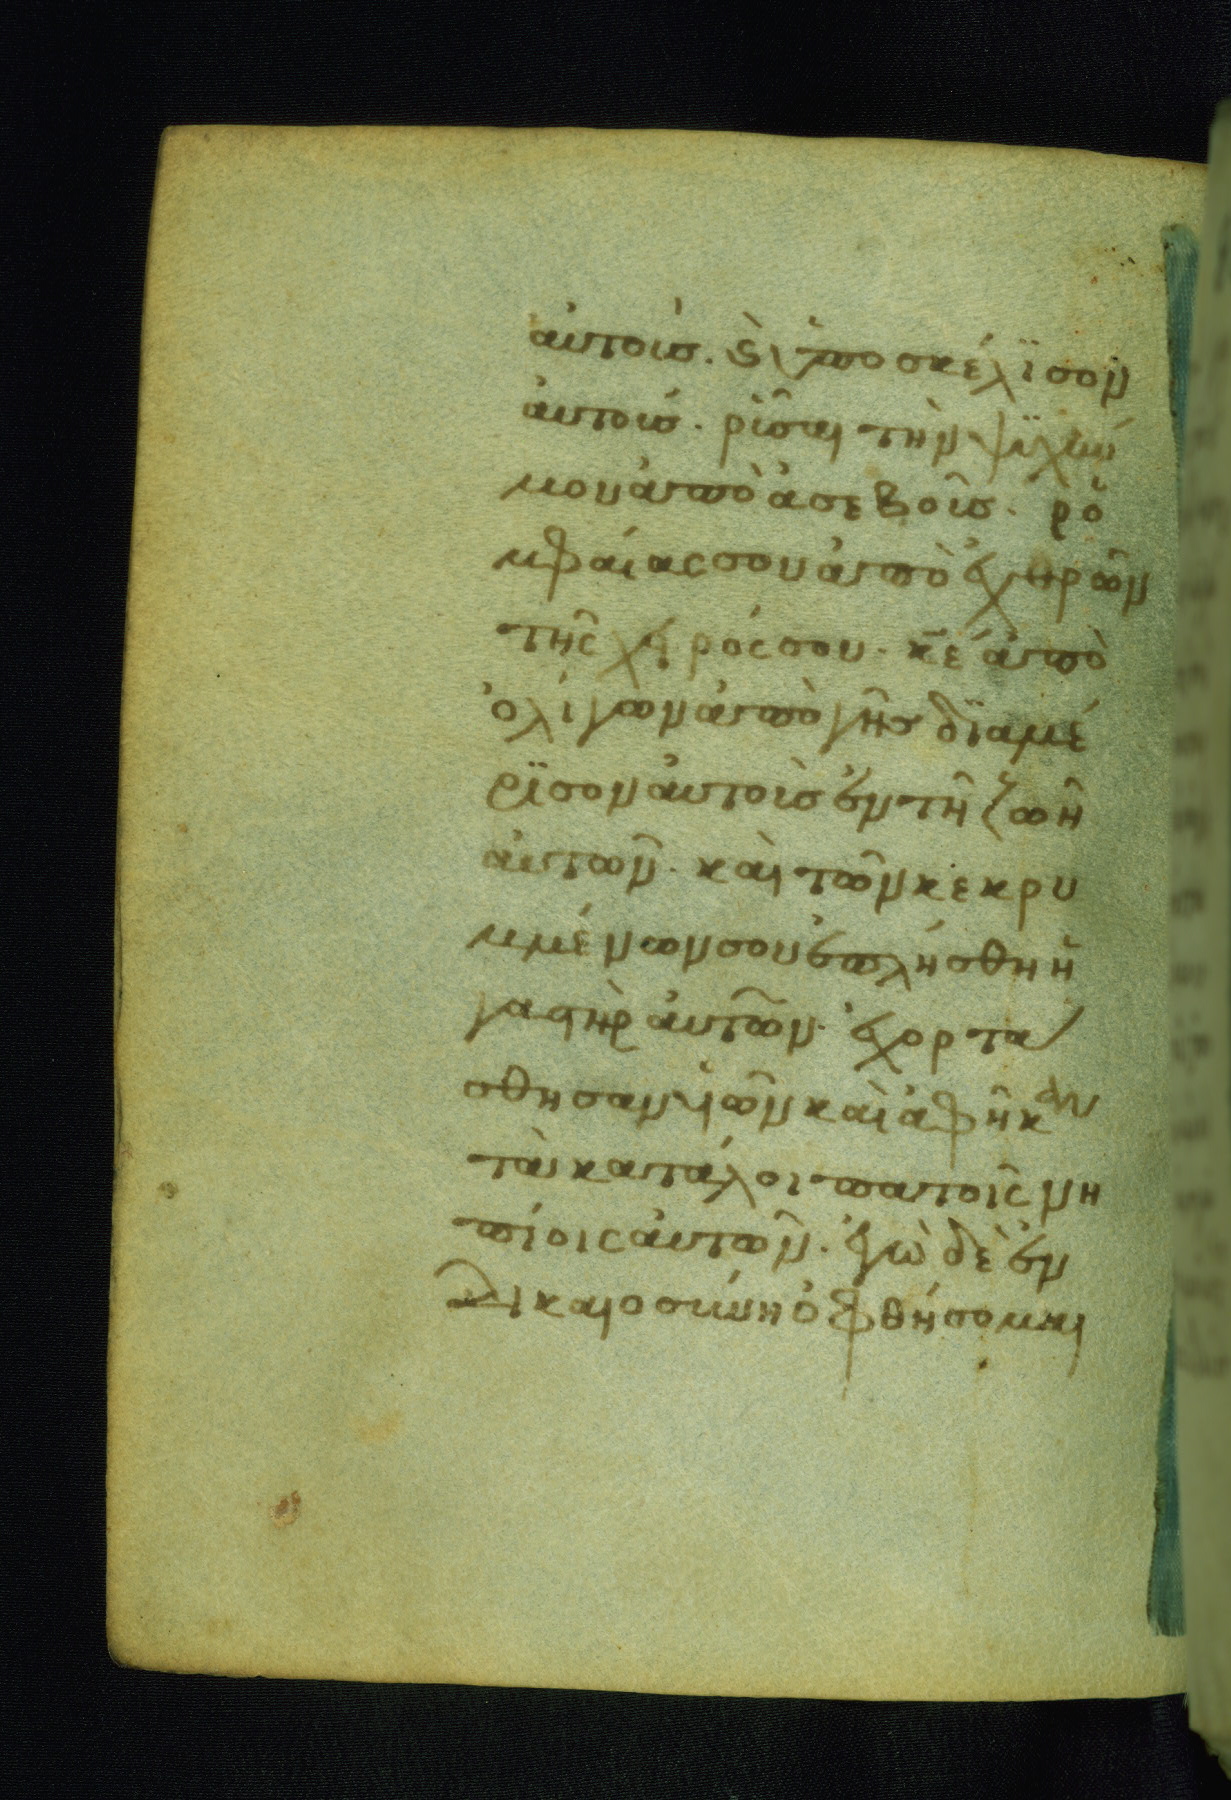 αὐτούς. (καὶ) ὑποσκέλϊσον
αὐτούς. ρῦσαι τὴν ψϋχήν
μου ἀπὸ ἀσεβοῦς. ρο
μφαίας σου ἀπὸ ἐχθρῶν
τῆς χειρός σου. κ̅ε̅ ἀπὸ
ὀλίγων ἀπὸ γῆς δϊαμέ
ρϊσον αὐτοὺς ἐν τῆ ζωῆ
αὐτῶν. καὶ τῶν κεκρυ
μμένων σου ἐπλήσθη ἡ
γαστὴρ αὐτῶν. ἐχορτά
σθησαν ὑιῶν καὶ ἀφῆκαν
τὰ κατάλοιπα τοῖς νη
πίοις αὐτῶν. ἐγὼ δὲ ἐν
δικαιοσύνη ὀφθήσομαι